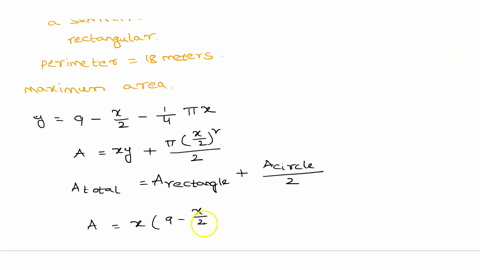 a
rectangular.
perimeter = 18 meters.
maximum area.
y = 9 - x/2 - 1/4 πx
A = xy + π(x/2)²/2
A total = A rectangle + A circle/2
A = x ( 9 - x/2